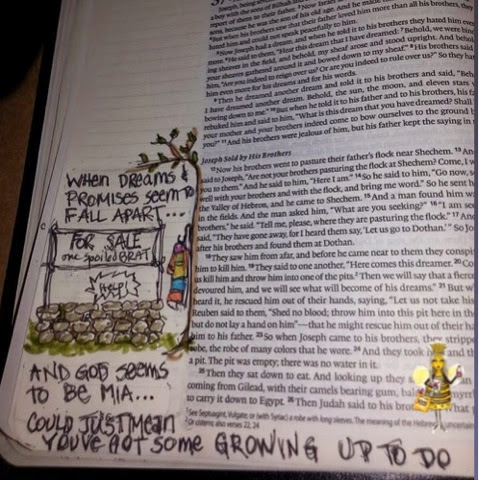 WHEN DREAMS &
PROMISES SEEM TO
FALL APART...
FOR SALE
one spoiled BRAT
HELP!
AND GOD SEEMS
TO BE MIA...
COULD JUST MEAN
YOU'VE GOT SOME GROWING UP TO DO
a boy with the
report of them to their father.
age.
But when his brothers saw that their father loved him more than all his brothers, they
and could not speak peacefully to him.
5Now Joseph had a dream, and when he told it to his brothers they hated him even
more. 6He said to them, "Hear this dream that I have dreamed: 7Behold, we were
sheaves in the field, and behold, my sheaf arose and stood upright. And behold,
your sheaves gathered around it and bowed down to my sheaf." 8His brothers said
him, "Are you indeed to reign over us? Or are you indeed to rule over us?" So they
him even more for his dreams and for his words.
9Then he dreamed another dream and told it to his brothers and said, "Beh
I have dreamed another dream. Behold, the sun, the moon, and eleven stars
bowing down to me." 10But when he told it to his father and to his brothers, his fa
rebuked him and said to him, "What is this dream that you have dreamed? Shall
your mother and your brothers indeed come to bow ourselves to the ground b
you?" 11And his brothers were jealous of him, but his father kept the saying in
Joseph Sold by His Brothers
12Now his brothers went to pasture their father's flock near Shechem. 13An
said to Joseph, "Are not your brothers pasturing the flock at Shechem? Come, I w
you to them." And he said to him, "Here I am." 14So he said to him, "Go now, s
well with your brothers and with the flock, and bring me word." So he sent h
the Valley of Hebron, and he came to Shechem. 15And a man found him w
in the fields. And the man asked him, "What are you seeking?" 16"I am see
brothers," he said. "Tell me, please, where they are pasturing the flock." 17And
said, "They have gone away, for I heard them say, 'Let us go to Dothan.'" So Jo
after his brothers and found them at Dothan.
18They saw him from afar, and before he came near to them they conspir
him to kill him. 19They said to one another, "Here comes this dreamer. 20Co
us kill him and throw him into one of the pits. Then we will say that a fierc
devoured him, and we will see what will become of his dreams." 21But w
heard it, he rescued him out of their hands, saying, "Let us not take his
Reuben said to them, "Shed no blood; throw him into this pit here in th
but do not lay a hand on him"—that he might rescue him out of their ha
him to his father. 23So when Joseph came to his brothers, they strippe
robe, the robe of many colors that he wore. 24And they took h and th
a pit. The pit was empty; there was no water in it.
25Then they sat down to eat. And looking up they s
coming from Gilead, with their camels bearing gum, bal
to carry it down to Egypt. 26Then Judah said to his bro
See Septuagint, Vulgate; or (with Syriac) a robe with long sleeves. The meaning of the Hebrew uncertain
Or cisterns; also verses 22, 24